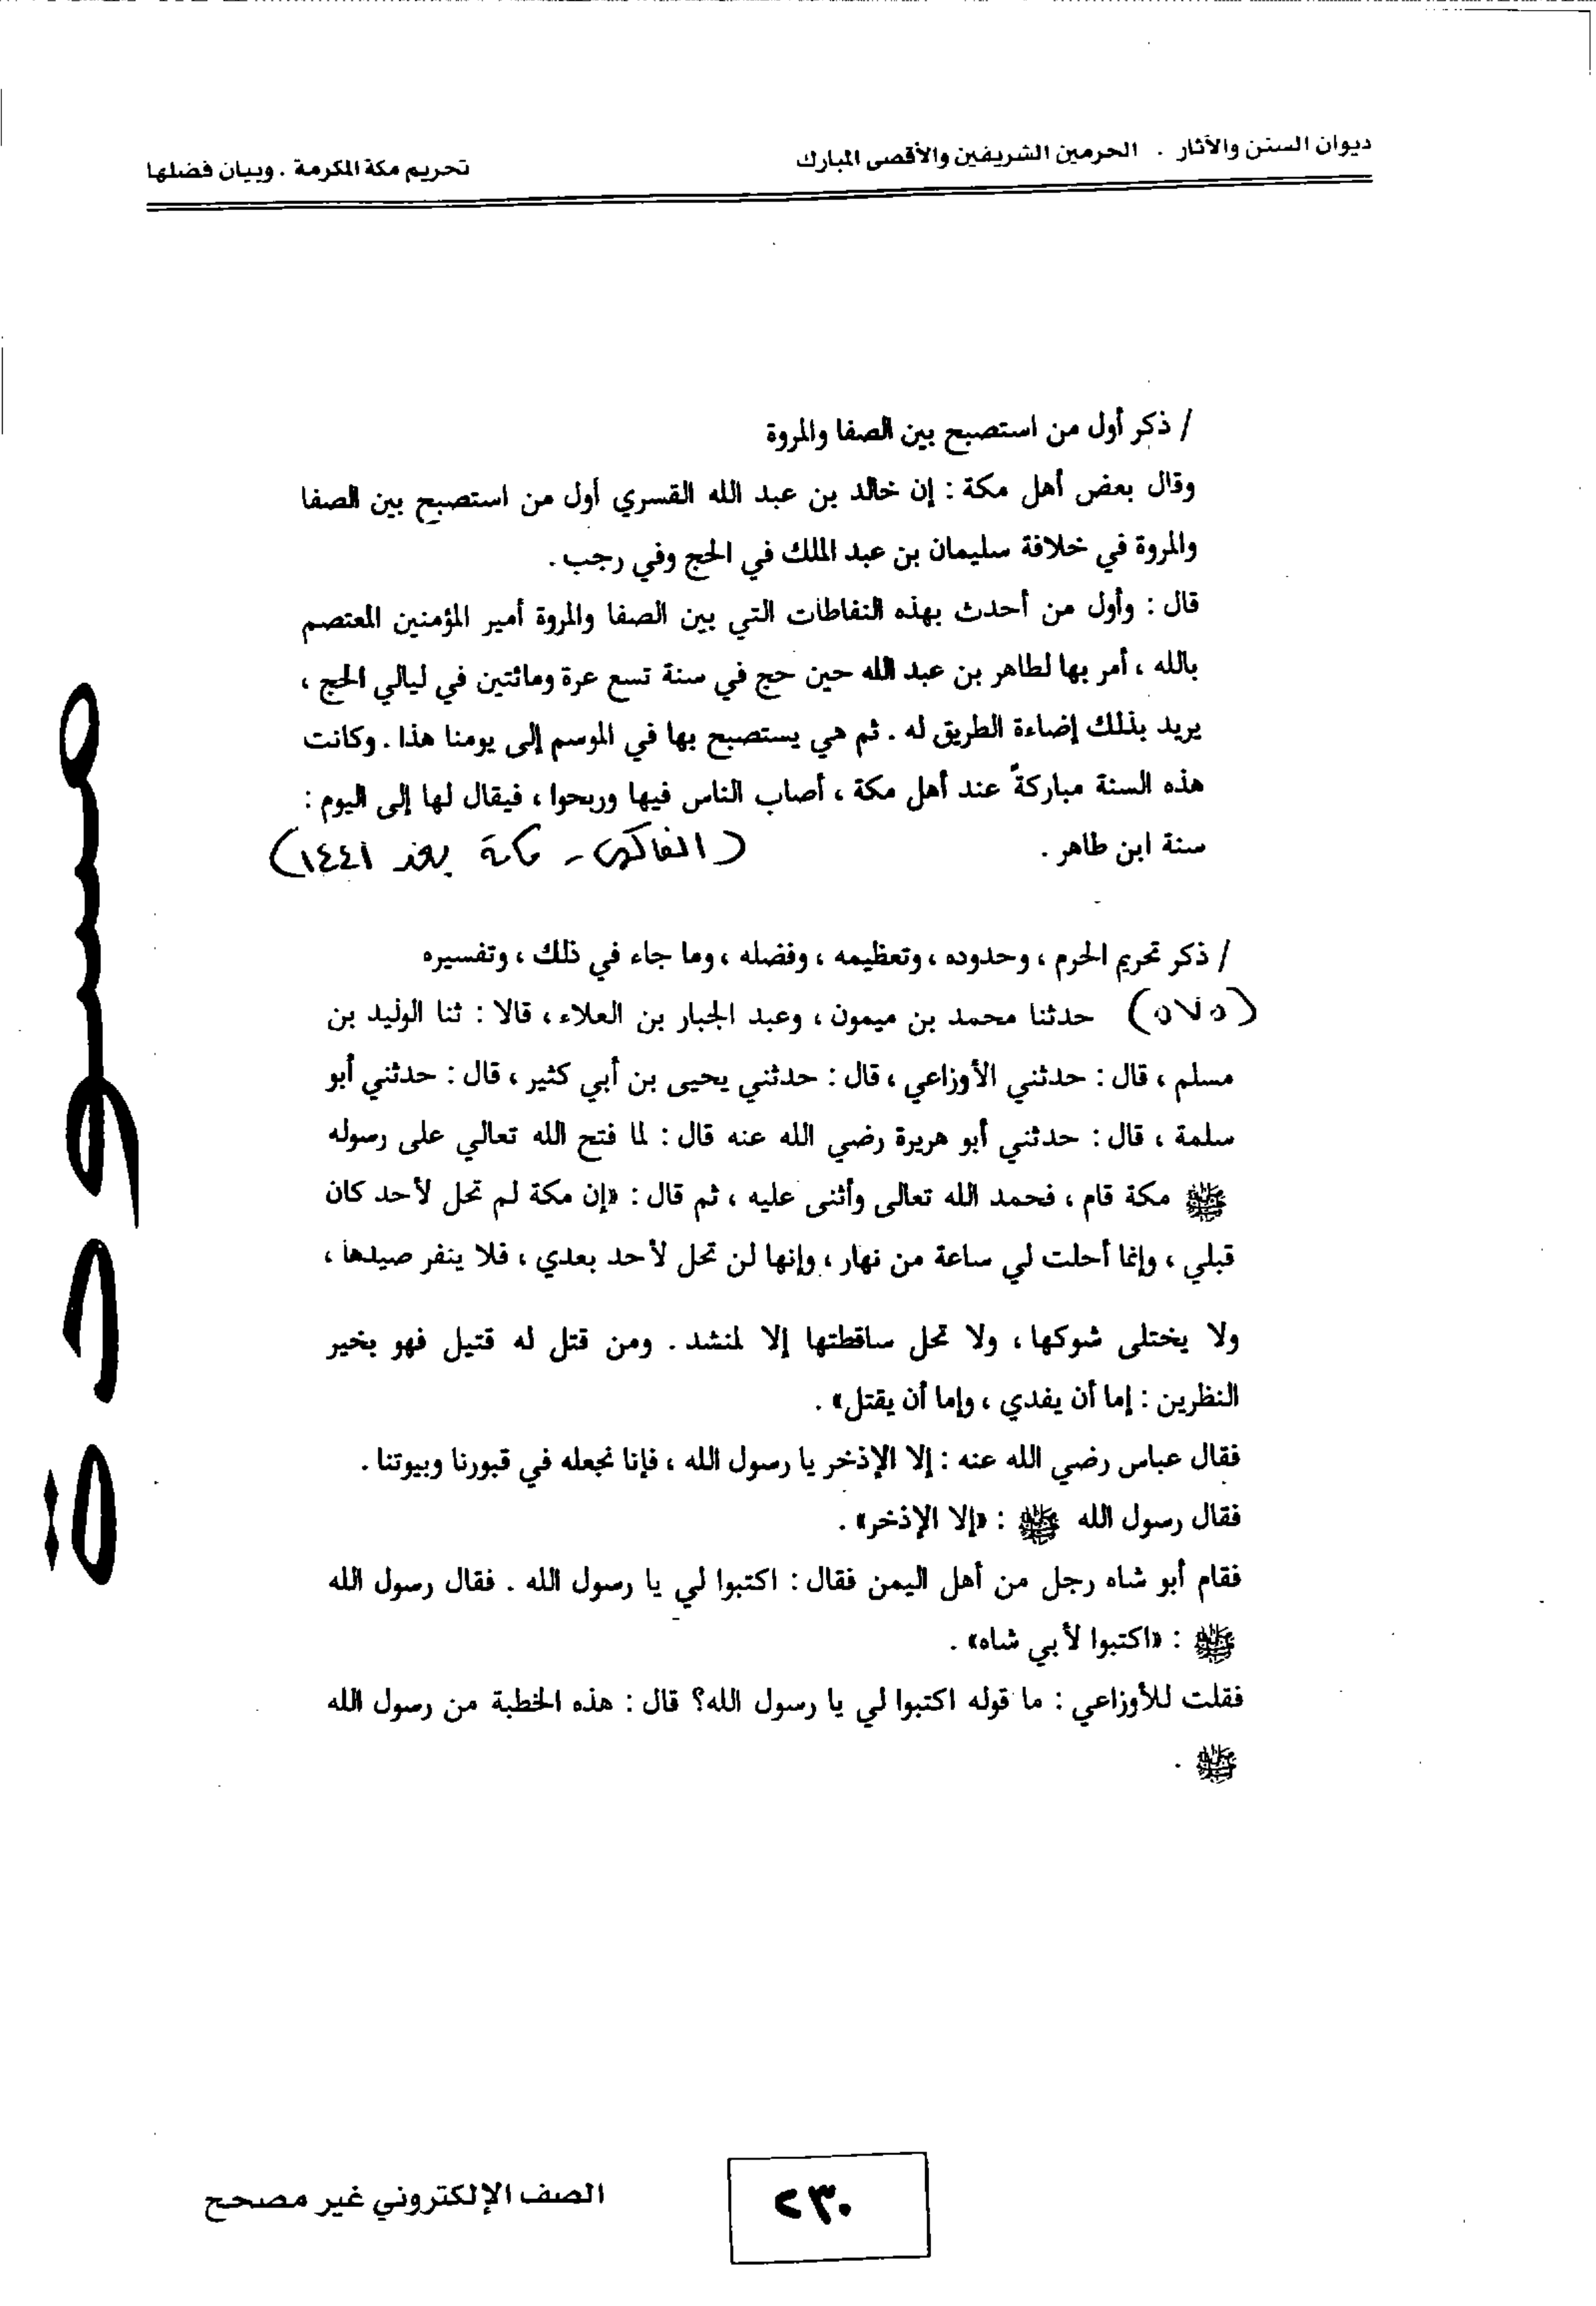 ديوان السنن والآثار . الحرمين الشريفين والأقصى المبارك
تحريم مكة المكرمة . وبيان فضلها
/ ذكر أول من استصبح بين الصفا والمروة
وقال بعض أهل مكة : إن خالد بن عبد الله القسري أول من استصبح بين الصفا
والمروة في خلافة سليمان بن عبد الملك في الحج وفي رجب .
قال : وأول من أحدث بهذه النفاطات التي بين الصفا والمروة أمير المؤمنين المعتصم
بالله ، أمر بها لطاهر بن عبد الله حين حج في سنة تسع عرة ومائتين في ليالي الحج ،
يريد بذلك إضاءة الطريق له . ثم هي يستصبح بها في الموسم إلى يومنا هذا . وكانت
هذه السنة مباركةً عند أهل مكة ، أصاب الناس فيها وربحوا ، فيقال لها إلى اليوم :
سنة ابن طاهر .
(الفاكهي - مكة بعد ١٤٤١)
/ ذكر تحريم الحرم ، وحدوده ، وتعظيمه ، وفضله ، وما جاء في ذلك ، وتفسيره
(٥٧٥) حدثنا محمد بن ميمون ، وعبد الجبار بن العلاء ، قالا : ثنا الوليد بن
مسلم ، قال : حدثني الأوزاعي ، قال : حدثني يحيى بن أبي كثير ، قال : حدثني أبو
سلمة ، قال : حدثني أبو هريرة رضي الله عنه قال : لما فتح الله تعالي على رسوله
ﷺ مكة قام ، فحمد الله تعالى وأثنى عليه ، ثم قال : «إن مكة لم تحل لأحد كان
قبلي ، وإنما أحلت لي ساعة من نهار ، وإنها لن تحل لأحد بعدي ، فلا ينفر صيدها ،
ولا يختلى شوكها ، ولا تحل ساقطتها إلا لمنشد . ومن قتل له قتيل فهو بخير
النظرين : إما أن يفدي ، وإما أن يقتل» .
فقال عباس رضي الله عنه : إلا الإذخر يا رسول الله ، فإنا نجعله في قبورنا وبيوتنا .
فقال رسول الله ﷺ : «إلا الإذخر» .
فقام أبو شاه رجل من أهل اليمن فقال : اكتبوا لي يا رسول الله . فقال رسول الله
ﷺ : «اكتبوا لأبي شاه» .
فقلت للأوزاعي : ما قوله اكتبوا لي يا رسول الله؟ قال : هذه الخطبة من رسول الله
ﷺ .
مسودة
٢٣٠
الصف الإلكتروني غير مصحح